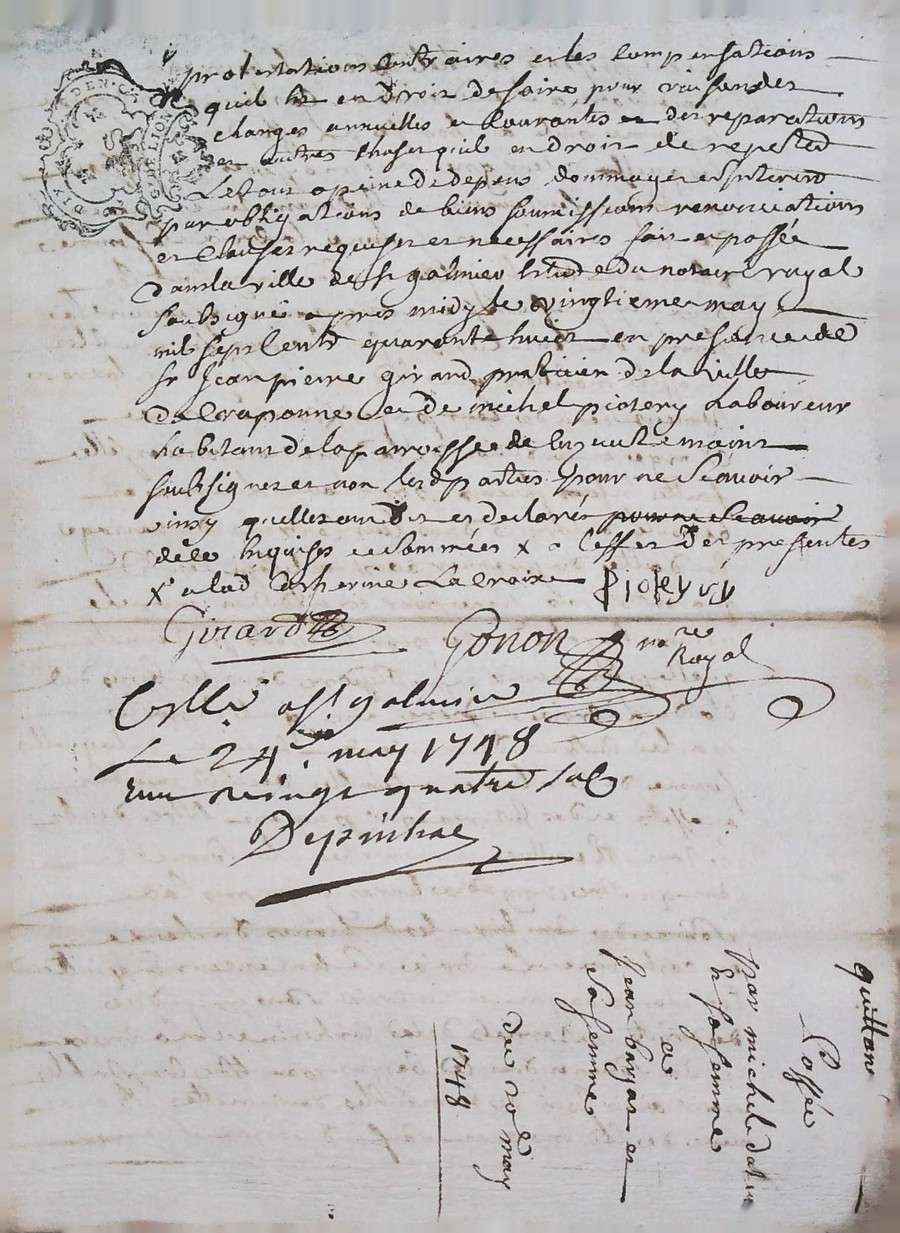 protestations Contraires et les Compensations
quil est en droit de faire pour raison des
charges annuelles et Courantes et des reparations
et autres Choses quil en droit de
Le tout a peine de depens dommages et Interest
par obligations de biens soumissions renonciations
et Clauses requises et necessaires fait et passée
dans la ville de st galmier Etude du notaire royal
soubsigné apres midy le vingtieme may
mil sept Cents quarante huict en presence de
sr Jean pierre girard praticien de la ville
de Craponne et de michel piotery Laboureur
habitant de la parroisse de
soubsignes et non les parties pour ne Scavoir
ainsy quelles ont dit et declarés pour ne Scavoir
de ce Enquises et Sommées x a l'effet des presentes
x a lad Catherine Lacroix Piotery
Girard Gonon nore Royal
Crllé a st galmier
Le 24e may 1748
Reçu vingt quatre sols
Depinhac
quittance
Passée
par michel
Et sa femme
a
Jean bayat et
Sa femme
du 20e may
1748